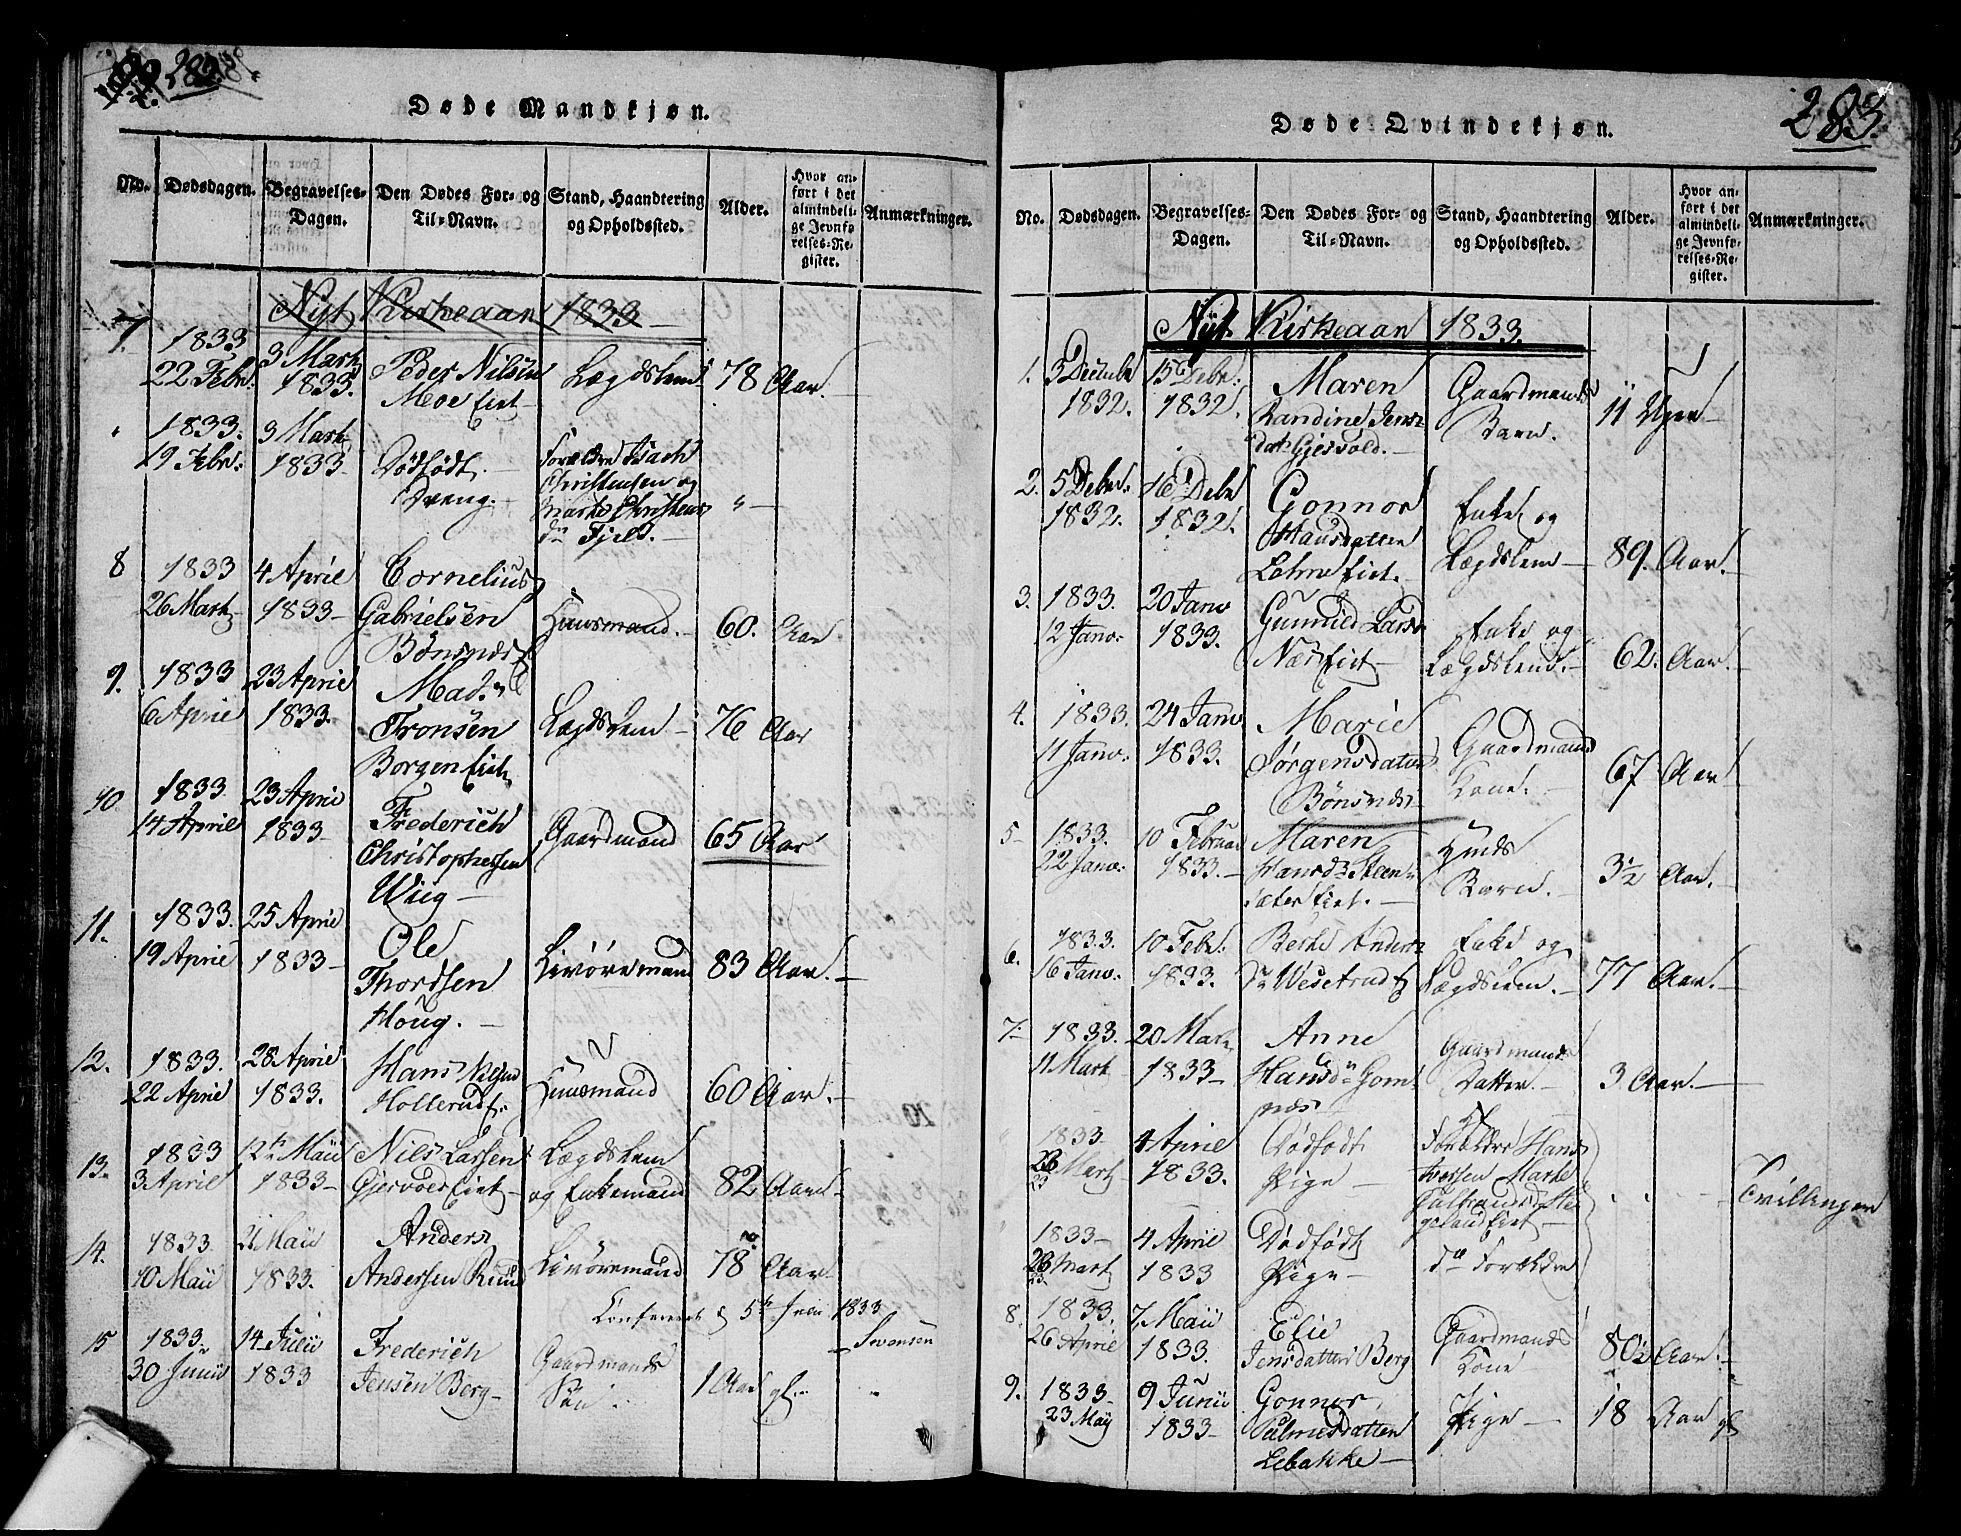 Døde Mandkjøn.
No. Dødsdagen. Begravelses-Dagen. Den Dødes For- og Til-Navn. Stand, Haandtering og Opholdssted. Alder. Hvor anført i det almindelige Jevnførelses-Register. Anmærkninger.
Nyt Kirkeaar 1833
7. 1833 22 Febr. 3 Marts 1833. Peder Nilsen Moe Eiet Lægdslem 78 Aar.
1833. 19 Febr. 3 Marts 1833 Dødfødt Dreng. Forældre Isach Christensen og Marthe Christensdr Fjeld. "
8 1833 26 Marts 4 April 1833 Cornelius Gabrielsen Bønsnæs Huusmand. 60. Aar
9. 1833 6 April 23 April 1833. Mads Tronsen Borgen Eiet Lægdslem 76 Aar
10 1833 14 April 23 April 1833 Frederich Christophersen Wiig Gaardmand 65 Aar
11. 1833. 19 April 25 April 1833 Ole Thordsen Houg. Livøremand 83 Aar.
12. 1833. 22 April 28 April 1833. Hans Hollerud Huusmand 60 Aar.
13. 1833 3 April 12te Maii 1833 Nils Larsen Eiet Lægdslem og Enkemand 82 Aar
14. 1833. 10 Maii 21 Maii 1833. Anders Andersen Ruud Livøremand 78 Aar
1833
15 1833. 30 Junii 14 Julii 1833 Frederich Jensen Berg Gaardmands Søn 1 Aar gl.
283.
Døde Qvindekjøn.
No. Dødsdagen. Begravelses-Dagen. Den Dødes For- og Til-Navn. Stand, Haandtering og Opholdssted. Alder. Hvor anført i det almindelige Jevnførelses-Register. Anmærkninger.
Nyt Kirkeaar 1833.
1. 3 Decembr 1832. 15 Debr. 1832. Maren Randine Jensdatr Gjesvold. Gaardmands Barn. 11 Uger
2. 5 Debr. 1832. 16 Debr 1832. Gonnor Hansdatter Eiet. Enke og Lægdslem 89. Aar.
3. 1833. 12 Janv. 20 Janv 1833. Gunnild Larsdr Næs Eiet Enke og Lægdslem. 62. Aar.
4. 1833. 11 Janv. 24 Janv 1833. Marie Jørgensdatter Bønsnæs Gaardmands Kone. 67 Aar
5 1833. 22 Janv. 10 Februar 1833. Maren Hansdr Steensæter Eiet. Hmds Barn. 3½ Aar.
6. 1833. 16 Janv. 10 Febr. 1833. Berthe Andersdr Wesetrud Enke og Lægdslem. 77 Aar.
7. 1833. 11 Marts 20 Marts 1833 Anne Hansdr Gomnæs Gaardmands Datter. 3 Aar.
1833 23 Marts 4 April 1833. Dødfødt Pige Forældre Hans Marthe Eiet Tvillinger
1833 23 Marts 4 April 1833 Dødfødt Pige do Forældre
8. 1833. 26 April 7 Maii 1833. Elie Jensdatter Berg Gaardmands Kone 80½ Aar.
9. 1833 23 Maij 9 Junii 1833 Gonnor Palmesdatter Lebakke Pige 18 Aar gl